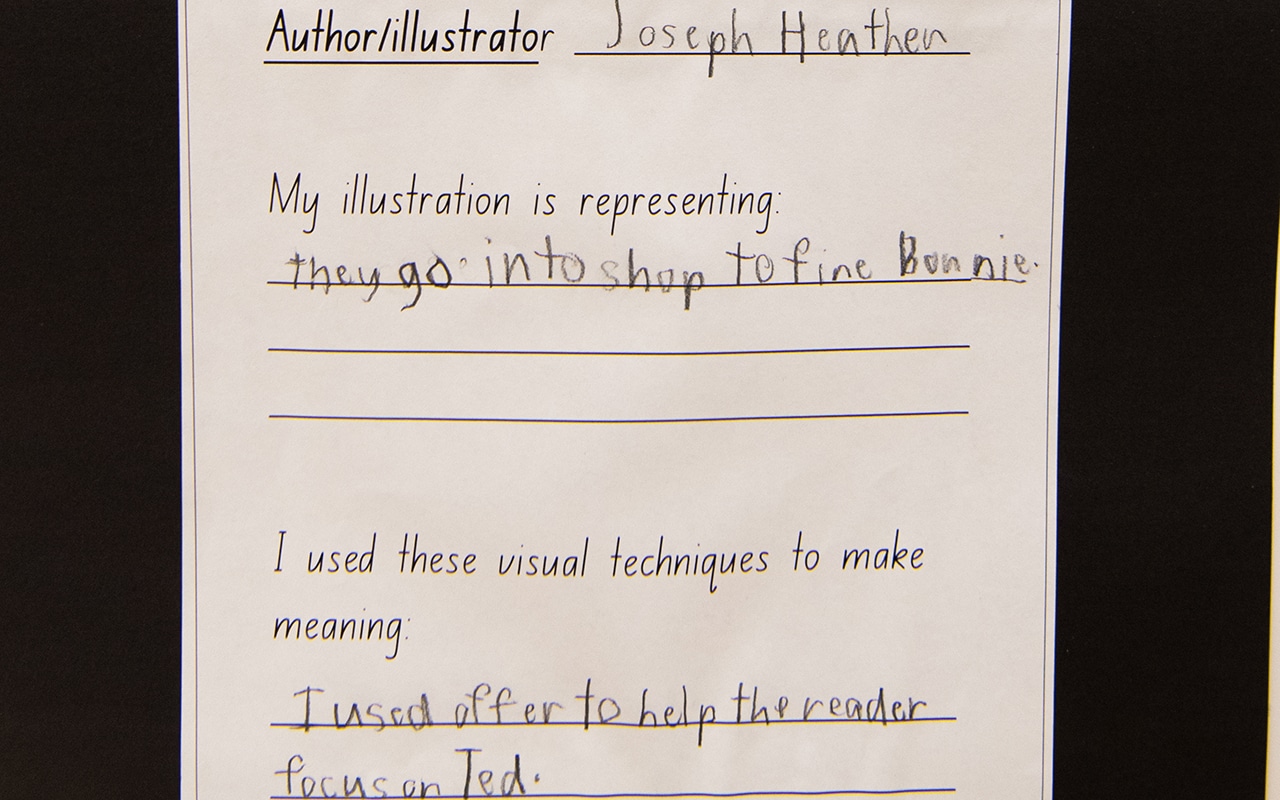 Author/illustrator Joseph Heathen
My illustration is representing:
they go into shop to fine Bonnie.
I used these visual techniques to make
meaning:
I used offer to help the reader
focus on Ted.